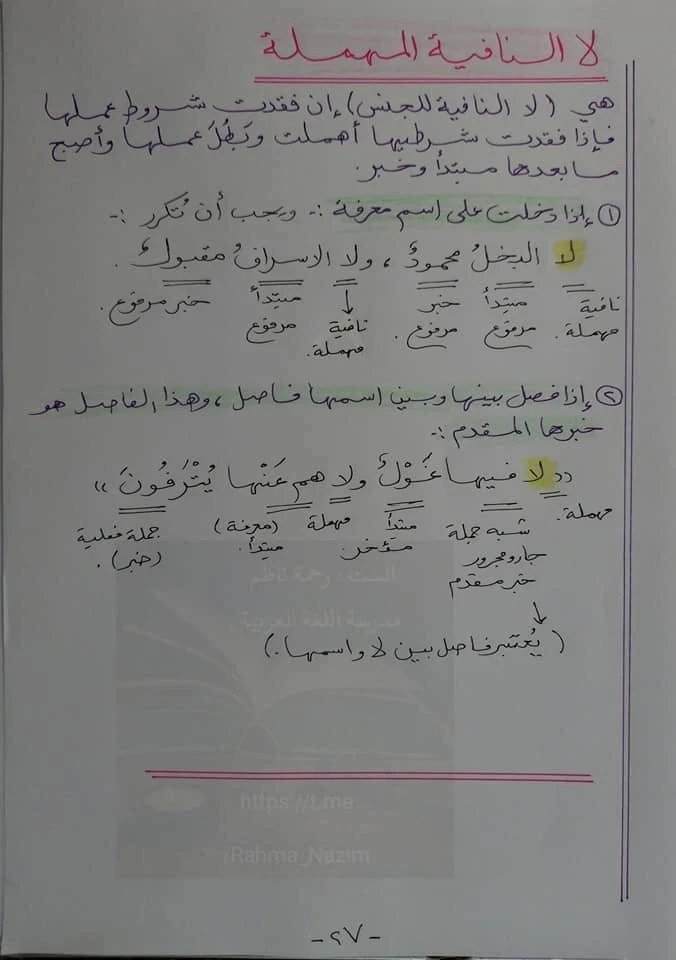 لا النافية المهملة
هي (لا النافية للجنس) إن فقدت شروط عملها
فإذا فقدت شرطيها أهملت وبَطُلَ عملها وأصبح
ما بعدها مبتدأ وخبر.
① إذا دخلت على اسم معرفة :- ويجب أن تُكرر :-
لا البخلُ محمودٌ ، ولا الاسرافُ مقبولٌ .
نافية مبتدأ خبر نافية مبتدأ خبر مرفوع.
مهملة. مرفوع مرفوع. مهملة. مرفوع
② إذا فصل بينها وبين اسمها فاصل ، وهذا الفاصل هو
خبرها المقدم :-
(( لا فيها غَوْلٌ ولا هم عَنْها يُنْزَفُونَ ))
مهملة. شبه جملة مبتدأ مهملة (معرفة) جملة فعلية
جار ومجرور مؤخر. مبتدأ. (خبر).
خبر مقدم
(يُعتبر فاصل بين لا واسمها.)
الست : رحمة ناظم
مدرسة اللغة العربية
https://t.me
Rahma_Nazim
-٢٧-